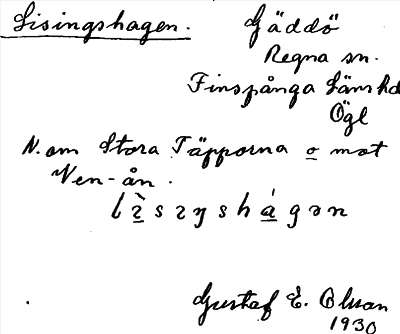 Lisingshagen. Gäddö
Regna sn.
Finspånga läns hd
Ögl
N. om Stora Täpporna o mot
Ven-ån.
Gustaf E. Olsson
1930